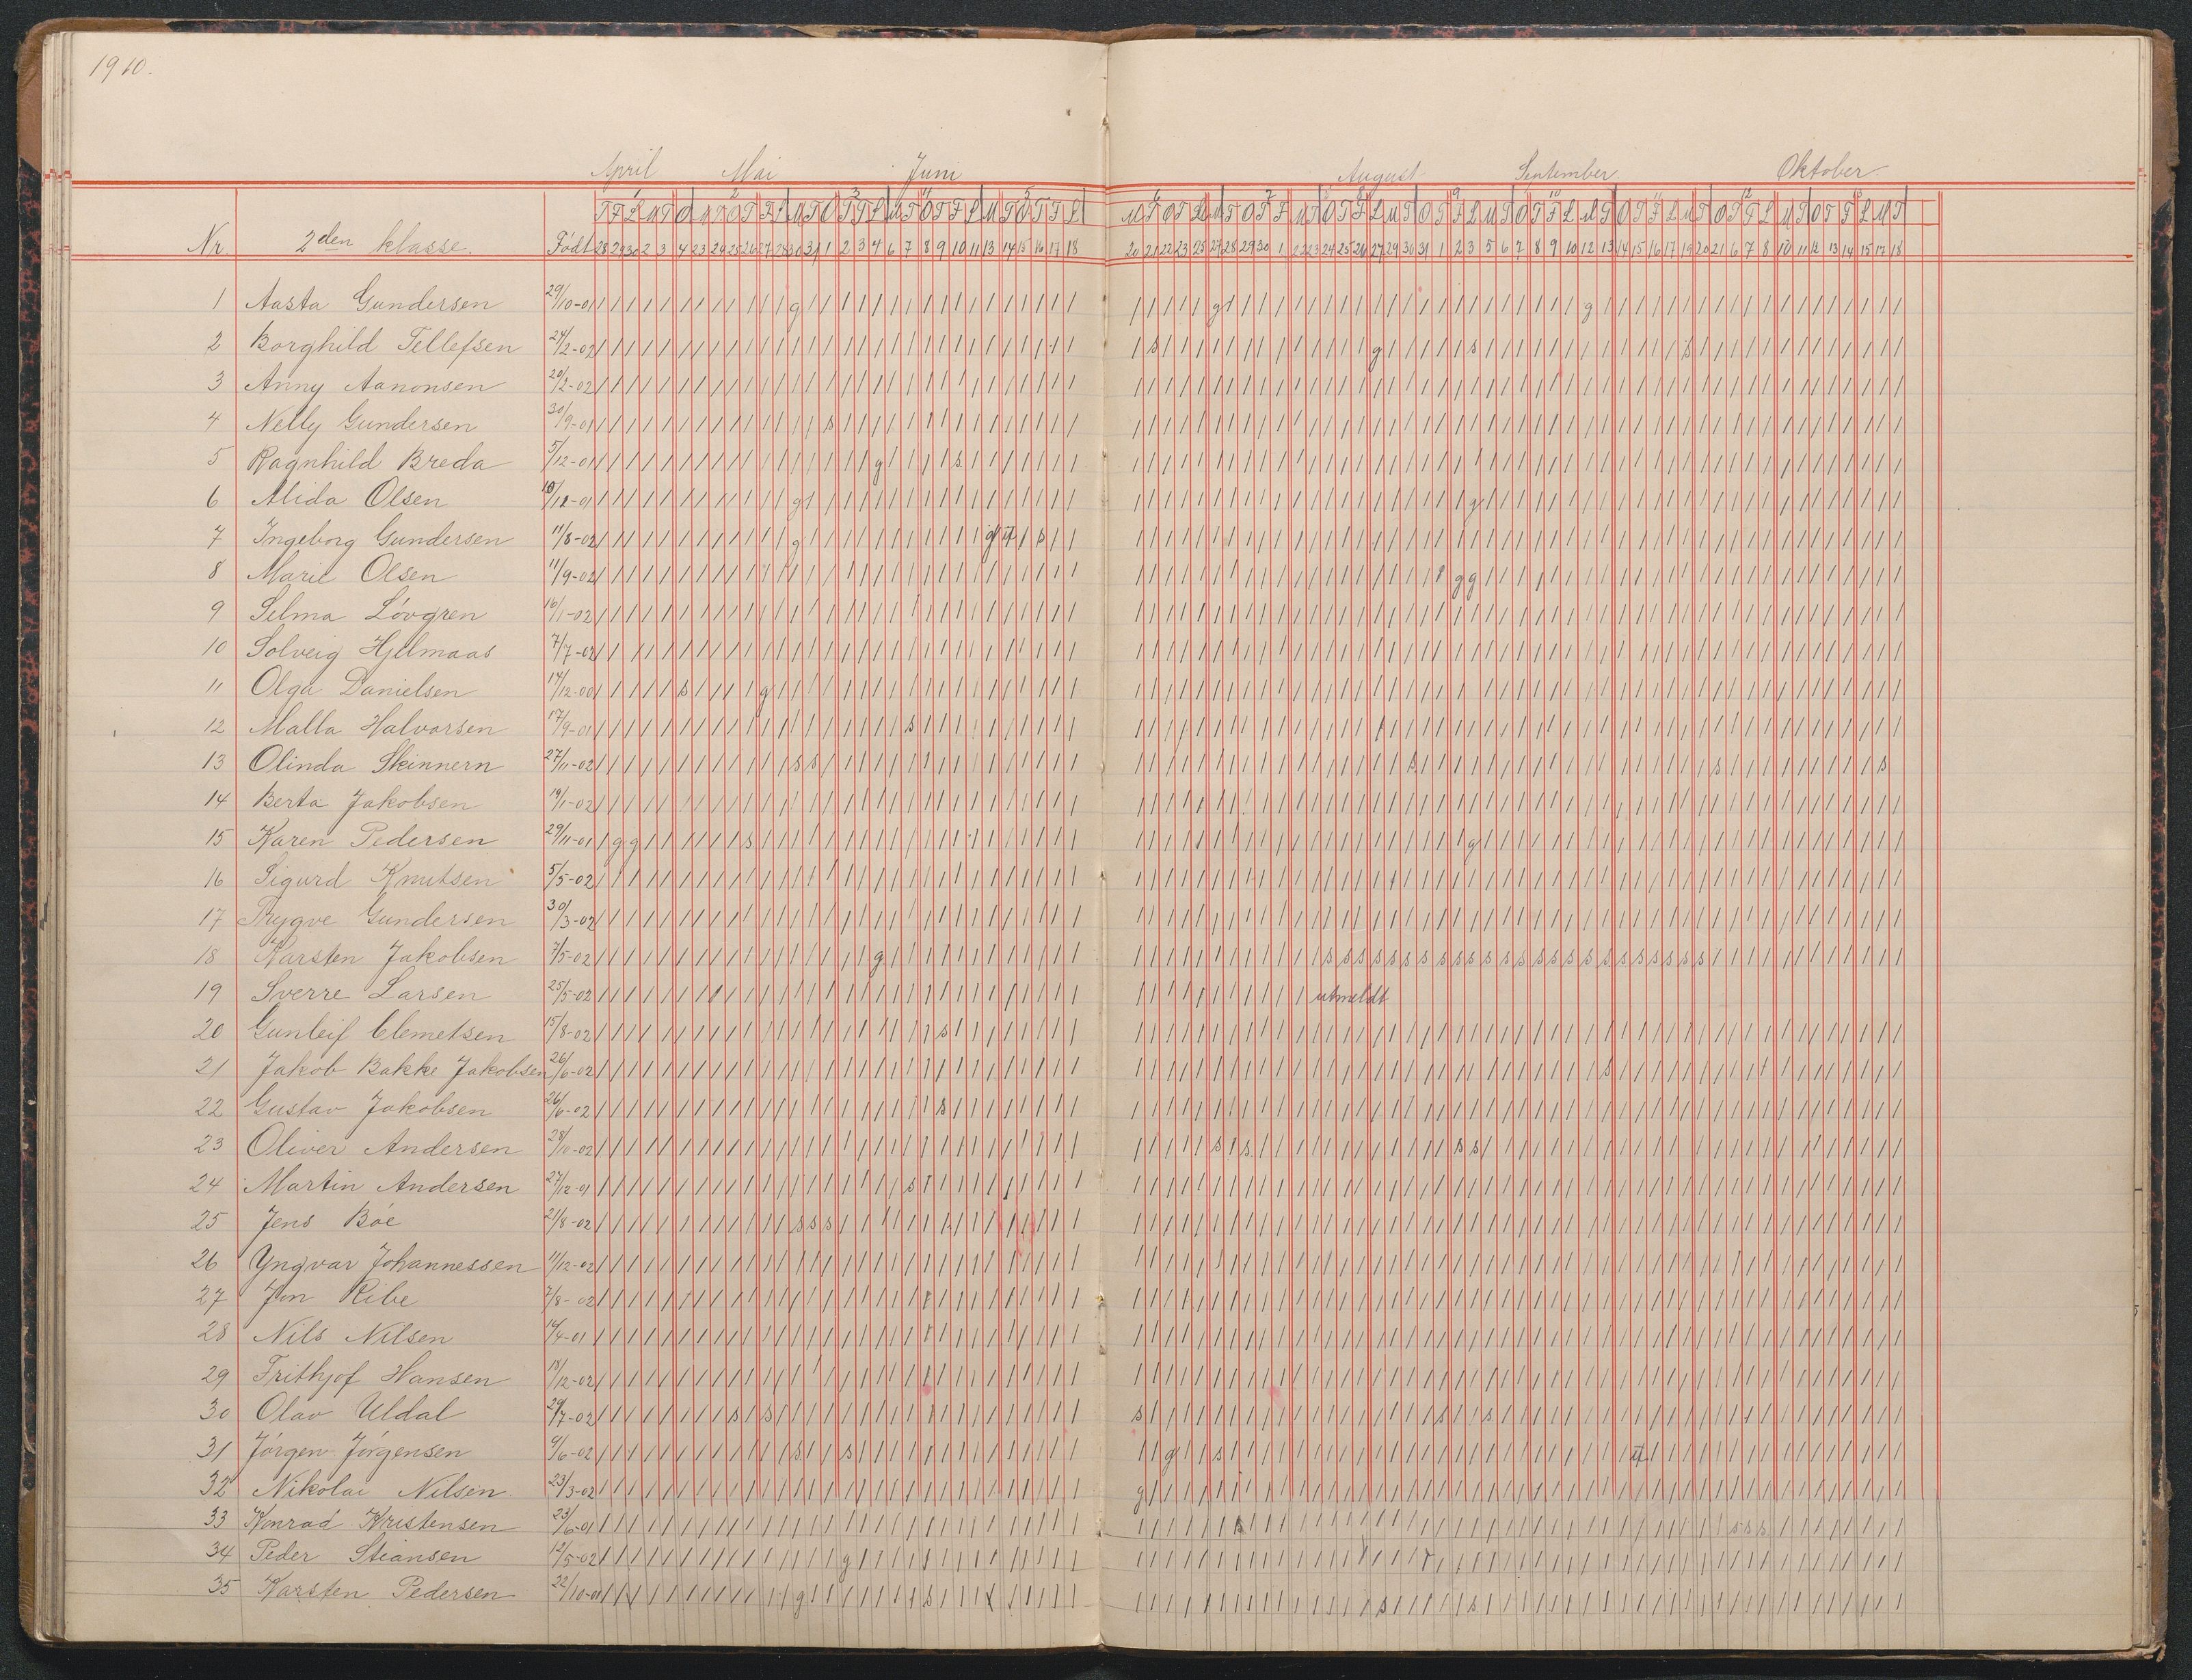 1910.
April Mai Juni August September Oktober
Nr. 2den klasse. Født 28 29 30 2 3 4 23 24 25 26 27 28 30 31 1 2 3 4 6 7 8 9 10 11 13 14 15 16 17 18 20 21 22 23 25 27 28 29 30 1 22 23 24 25 26 27 29 30 31 1 2 3 5 6 7 8 9 10 12 13 14 15 16 17 19 20 21 6 7 8 10 11 12 13 14 15 17 18
1 Aasta Gundersen 29/10-01
2 Borghild Tellefsen 24/2-02
3 Anny Aanonsen 20/2-02
4 Nelly Gundersen 30/9-01
5 Ragnhild Breda 5/12-01
6 Alida Olsen
7 Ingeborg Gundersen 11/8-02
8 Marie Olsen 11/9-02
9 Selma Løvgren 16/1-02
10 Solveig Hjelmaas 7/7-02
11 Olga Danielsen 14/12-00
12 Malla Halvorsen 17/9-01
13 Olinda Skinnern 27/11-02
14 Berta Jakobsen 19/1-02
15 Karen Pedersen 29/11-01
16 Sigurd Knutsen 5/5-02
17 Trygve Gundersen 30/3-02
18 Karsten Jakobsen 7/5-02
19 Sverre Larsen 25/5-02 utmeldt
20 Gunleif Clemetsen 15/8-02
21 Jakob Bakke Jakobsen 26/6-02
22 Gustav Jakobsen 26/6-02
23 Oliver Andersen 28/10-02
24 Martin Andersen 27/12-01
25 Jens Bøe 21/8-02
26 Yngvar Johannessen 11/12-02
27 Jon Ribe 7/8-02
28 Nils Nilsen 14/4-01
29 Frithjof Hansen 18/12-02
30 Olav Uldal 29/7-02
31 Jørgen Jørgensen 9/6-02
32 Nikolai Nilsen 23/3-02
33 Konrad Kristensen 23/6-01
34 Peder Stiansen 12/5-02
35 Karsten Pedersen 22/10-01